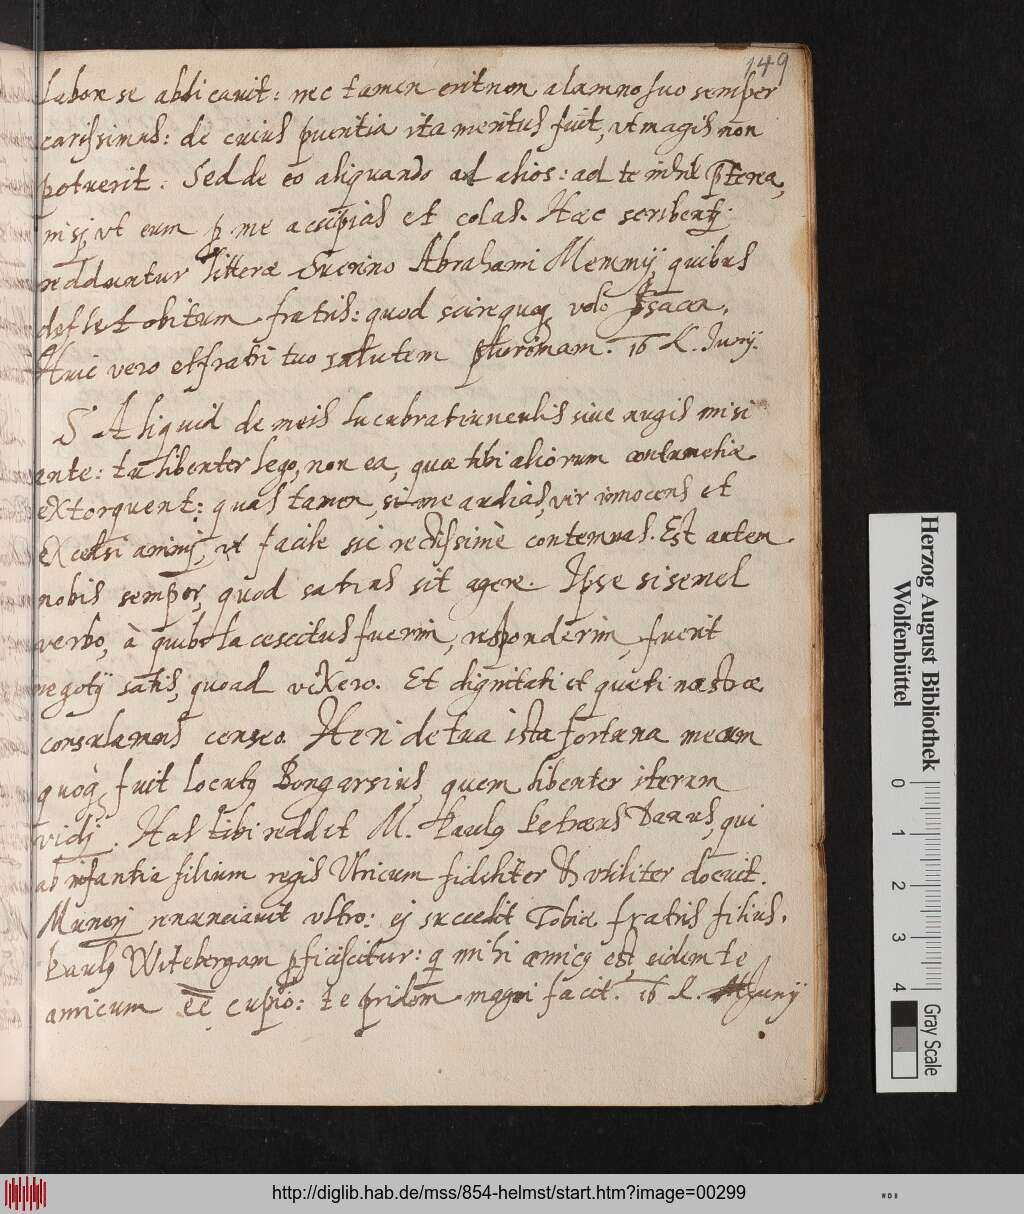 149
labore se abdicauit: nec tamen erit non alumno suo semper
carissimus: de cuius pueritia ita meritus fuit, vt magis non
potuerit. Sed de eo aliquando ad alios: ad te nihil pterea,
nisj vt eum p me accipias et colas. Haec scribentj
redduntur litterae Suerino Abrahami Memmij, quibus
deflet obitum fratris: quod scire quoq volo
Huic vero et fratri tuo salutem plurimam. 16 K. Junij.
S Aliquid de meis lucubratiunculis siue nugis misi
ante: tu libenter lego, non ea, quae tibi aliorum contumeliae
extorquent: quas tamen, si me audias, vir innocens et
excelsi animj, vt facile sic rectissimè contemnas. Est autem
nobis semper, quod satius sit agere. Ipse si semel
verbo, à quibo lacescitus fuerim, responderim, fuerit
negotij satis, quoad vixero. Et dignitati et quieti nostrae
consulamus censeo. Heri de tua ista fortuna mecum
quoq fuit locutq Bongarsius, quem libenter iterum
vidj. Has tibi reddit M. Paulq Petraeus Danus, qui
ab infantia filium regis Vnicum fideliter & vtiliter docuit.
Munerj nnunciauit vltro: ej succedit Tobiae fratris filius.
Paulq Witebergam pficiscitur: q mihi amicq est, eidem te
amicum ee cupio: te pridem magni facit. 16 K. Junij
Herzog August Bibliothek
Wolfenbüttel
0 1 2 3 4
Gray Scale
http://diglib.hab.de/mss/854-helmst/start.htm?image=00299